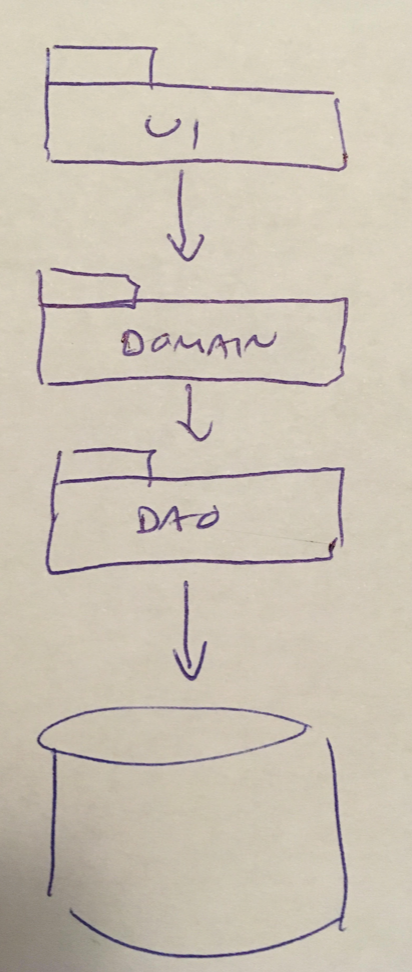 UI
DOMAIN
DAO